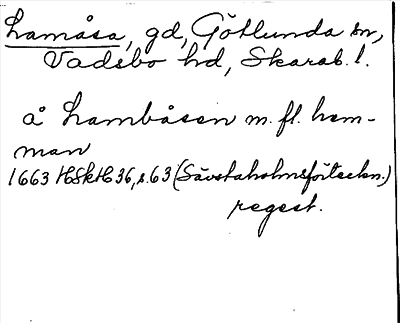 Lamåsa, gd, Götlunda sn,
Vadsbo hd, Skarab. l.
å Lambåsen m. fl. hem-
man
1663 HSkH 36, s. 63 (Sävstaholmsförteckn.)
regest.